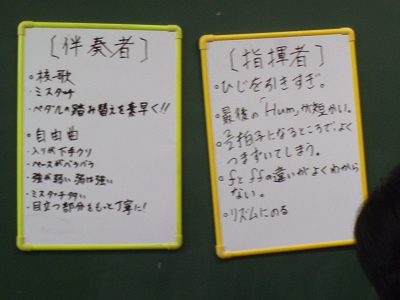 [伴奏者]
・校歌
・ミスタッチ
・ペダルの踏み替えを素早く!!
・自由曲
・入りが下手クソ
・ペースがバラバラ
・強が弱い 弱は強い
・ミスタッチ多い
・目立つ部分をもっと丁寧に!
[指揮者]
・ひじを引きすぎ。
・最後の「Hum」が短かい。
・拍子になるところで、よく
つまずいてしまう。
・fとffの違いがよくわから
ない。
・リズムにのる